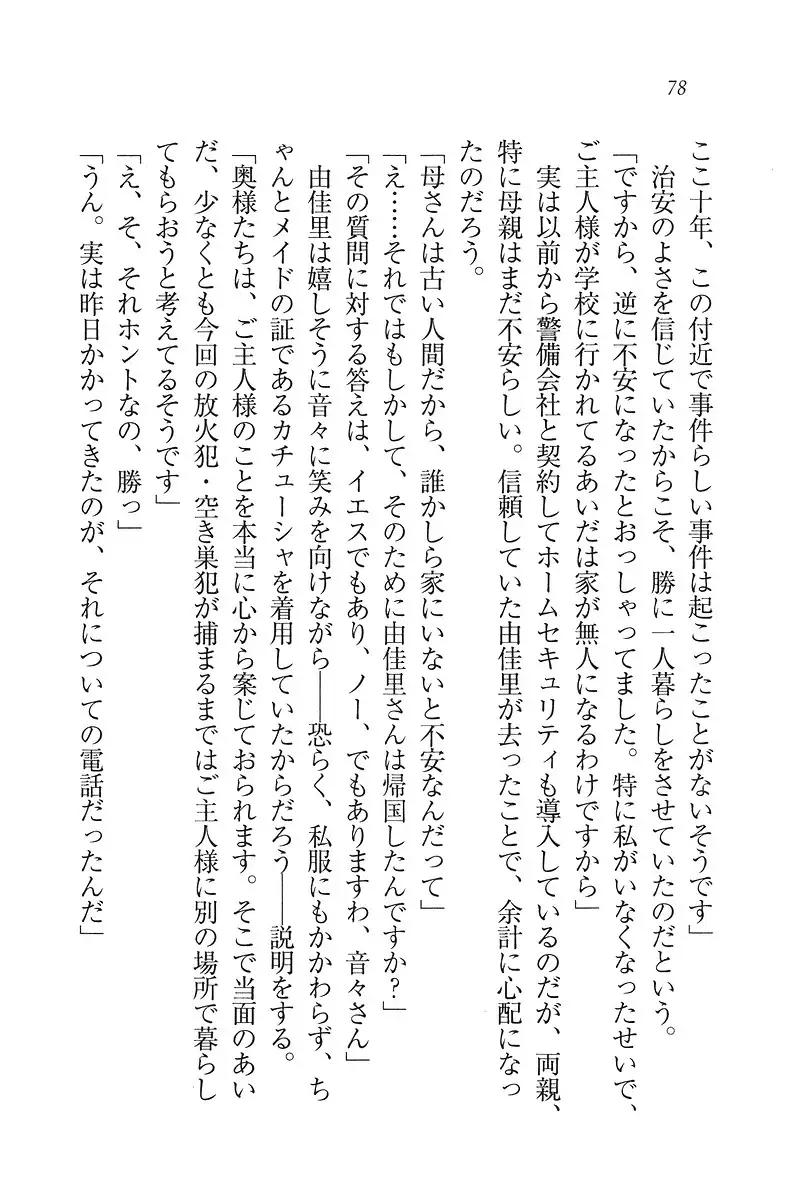 78
ここ十年、この付近で事件らしい事件は起こったことがないそうです」
治安のよさを信じていたからこそ、勝に一人暮らしをさせていたのだという。
「ですから、逆に不安になったとおっしゃってました。特に私がいなくなったせいで、
ご主人様が学校に行かれてるあいだは家が無人になるわけですから」
実は以前から警備会社と契約してホームセキュリティも導入しているのだが、両親、
特に母親はまだ不安らしい。信頼していた由佳里が去ったことで、余計に心配になっ
たのだろう。
「母さんは古い人間だから、誰かしら家にいないと不安なんだって」
「え……それではもしかして、そのために由佳里さんは帰国したんですか？」
「その質問に対する答えは、イエスでもあり、ノー、でもありますわ、音々さん」
由佳里は嬉しそうに音々に笑みを向けながら――恐らく、私服にもかかわらず、ち
ゃんとメイドの証であるカチューシャを着用していたからだろう――説明をする。
「奥様たちは、ご主人様のことを本当に心から案じておられます。そこで当面のあい
だ、少なくとも今回の放火犯・空き巣犯が捕まるまではご主人様に別の場所で暮らし
てもらおうと考えてるそうです」
「え、そ、それホントなの、勝っ」
「うん。実は昨日かかってきたのが、それについての電話だったんだ」